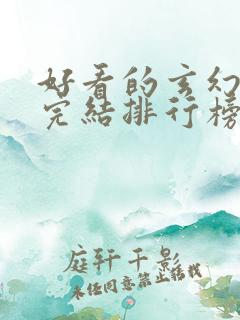 好看的玄幻
完结排行榜
庭轩千影
未经同意禁止转载